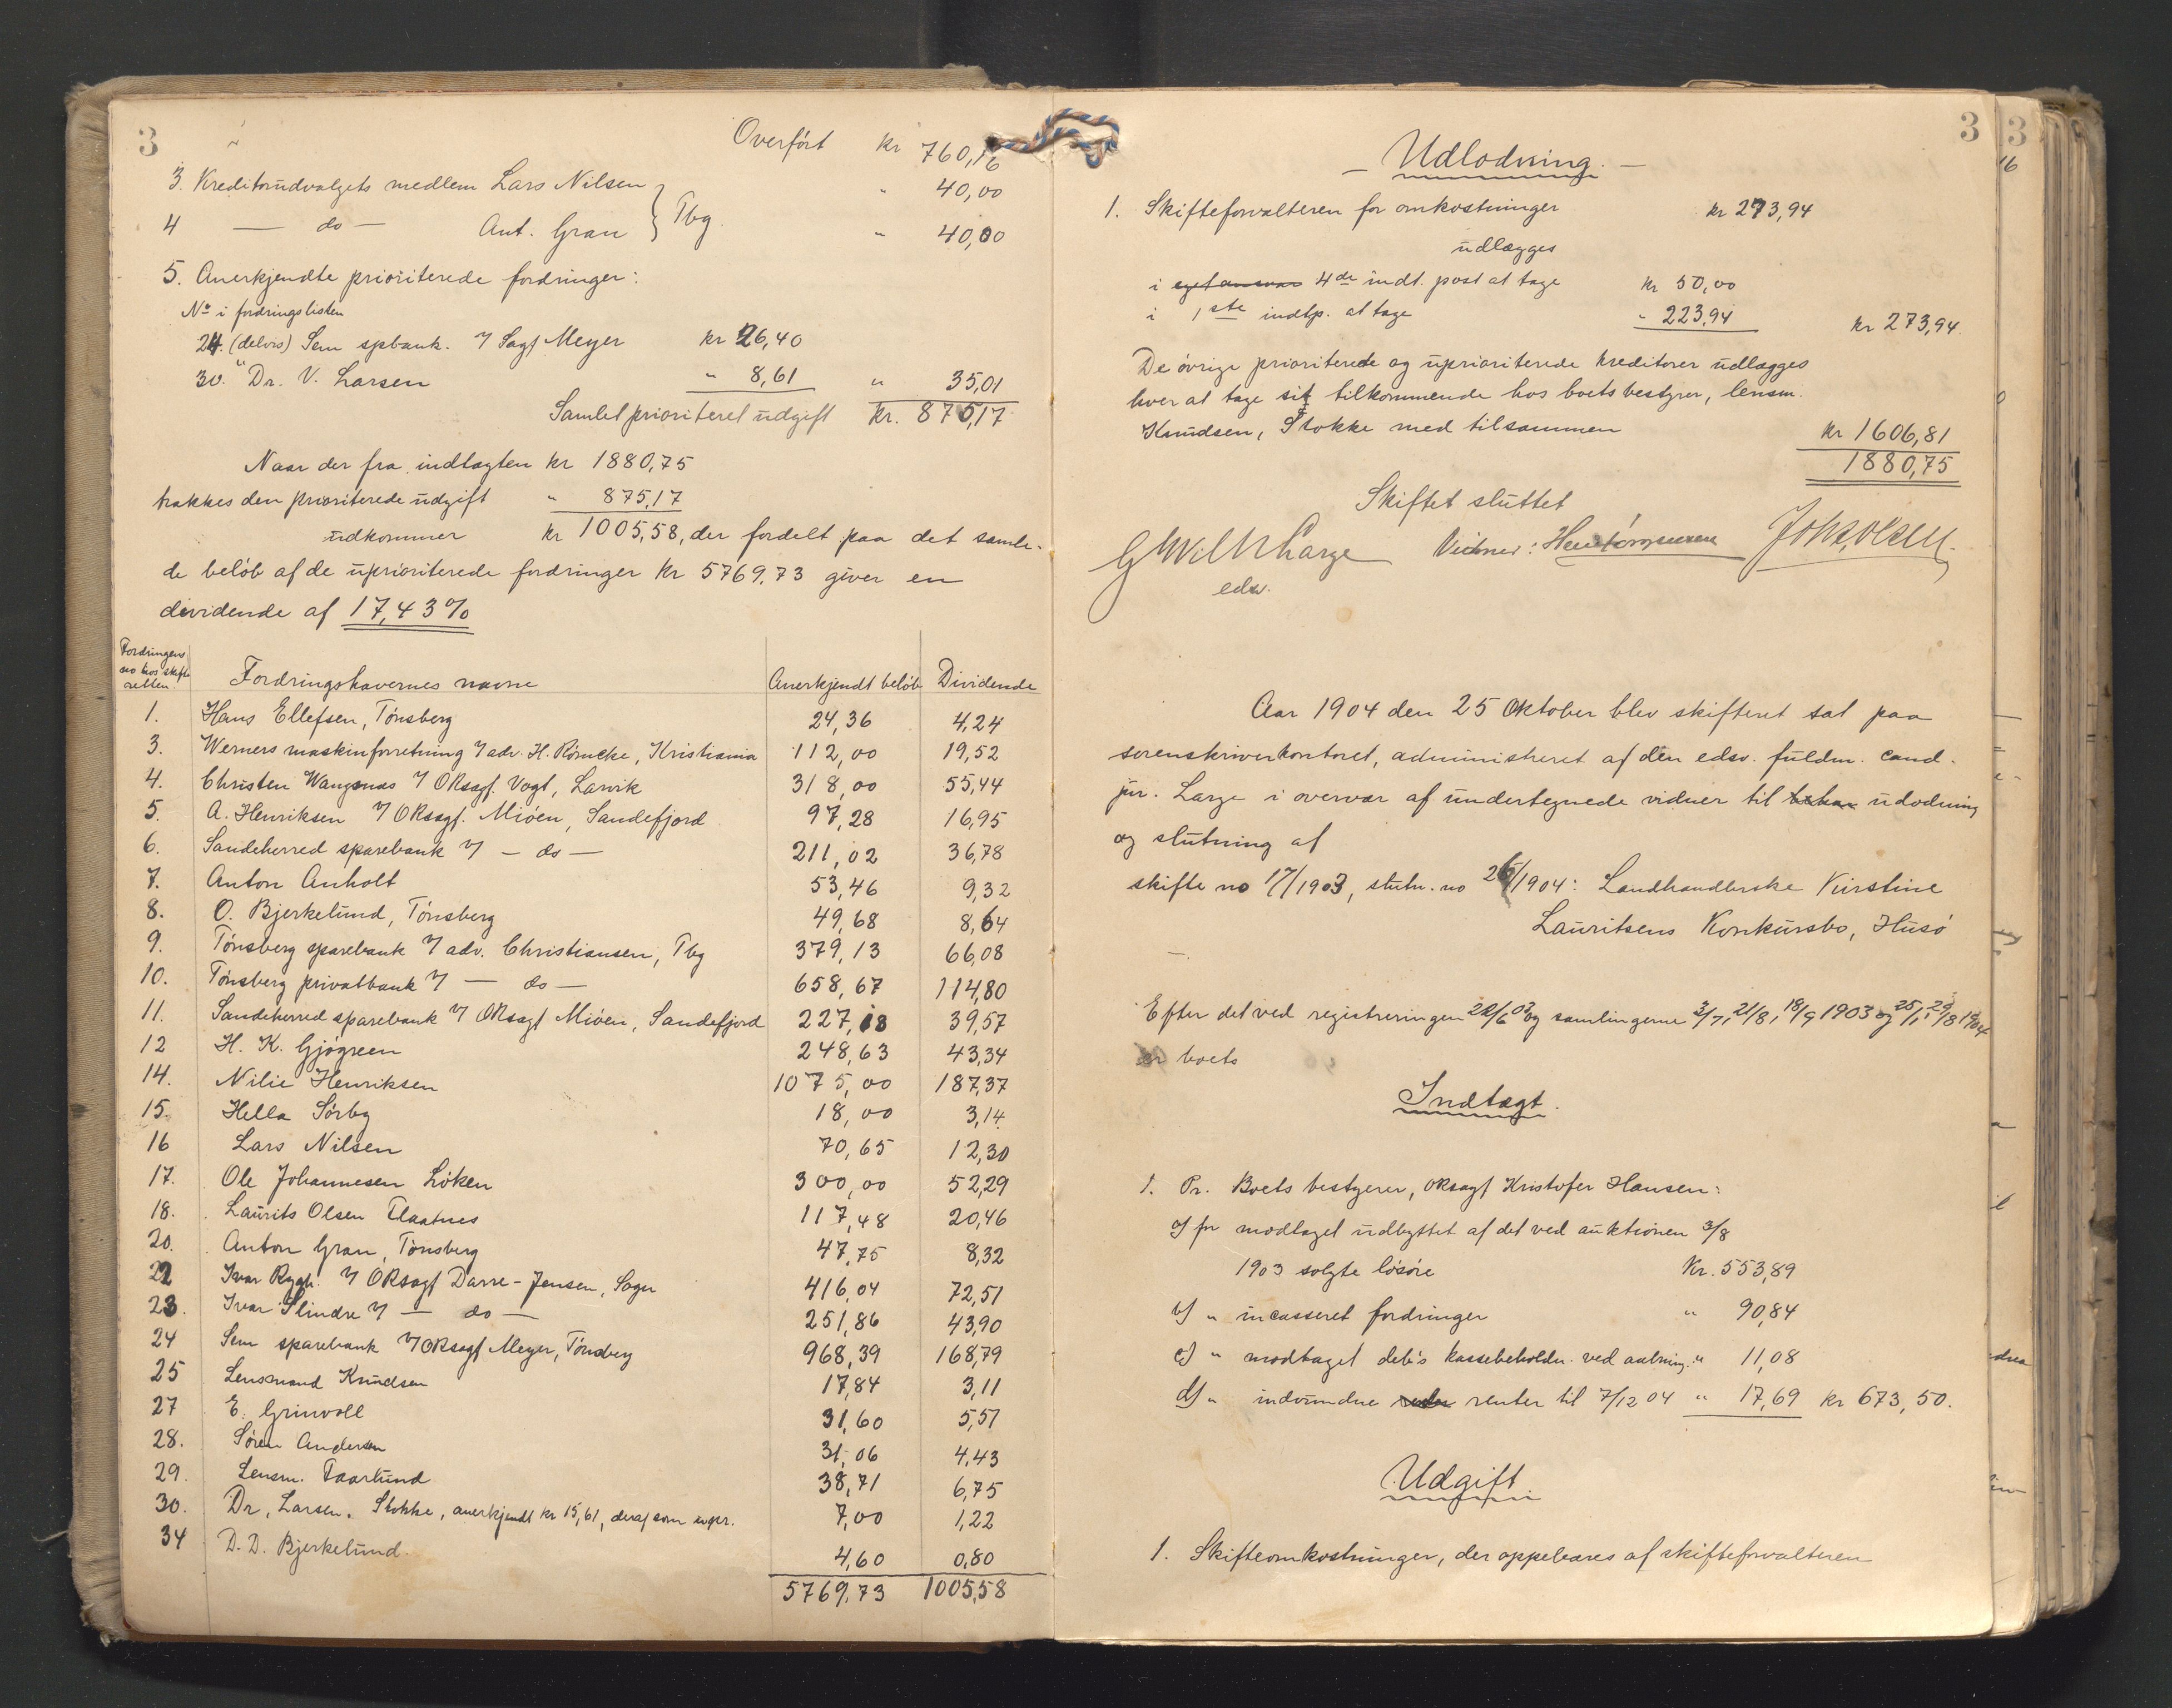 3
Overført kr 760,16
3. Kreditorudvalgets medlem Lars Nilsen } Tbg. " 40,00
4 — do — Ant. Gran " 40,00
5. Anerkjendte prioriterede fordringer:
No i fordringslisten
24. (delvis) Sem spbank. v/ Sagf Meyer kr 26,40
30. " Dr. V. Larsen " 8,61 " 35,01
Samlet prioriteret udgift kr. 875,17
Naar der fra indtægten kr 1880,75
trækkes den prioriterede udgift " 875,17
udkommer kr 1005,58, der fordelt paa det samle-
de beløb af de uprioriterede fordringer kr 5769.73 giver en
dividende af 17,43%
Fordringens no hos skifteretten Fordringshavernes navne Anerkjendt beløb Dividende
1. Hans Ellefsen, Tønsberg 24,36 4,24
3. Werners maskinforretning v/ adv. H. Römcke, Kristiania 112,00 19,52
4. Christen Wangsnæs v/ ORsagf. Vogt, Larvik 318,00 55,44
5. A. Henriksen v/ ORsagf. Miøen, Sandefjord 97,28 16,95
6. Sandeherred sparebank v/ — do — 211,02 36,78
7. Anton Anholt 53,46 9,32
8. O. Bjerkelund, Tønsberg 49,68 8,64
9. Tønsberg sparebank v/ adv. Christiansen, Tbg 379,13 66,08
10. Tønsberg privatbank v/ — do — 658,67 114,80
11. Sandeherred sparebank v/ ORsagf Miøen, Sandefjord 227,18 39,57
12 H. K. Gjøgreen 248,63 43,34
14. Nilie Henriksen 1075,00 187,37
15. Hella Sørby 18,00 3,14
16 Lars Nilsen 70,65 12,30
17. Ole Johannesen Løken 300,00 52,29
18. Laurits Olsen Flaatnes 117,48 20,46
20. Anton Gran, Tønsberg 47,75 8,32
22 Ivar Rygh. v/ ORsagf Darre-Jensen, Soger 416,04 72,51
23. Ivar Slindre v/ — do — 251,86 43,90
24 Sem sparebank v/ ORsagf Meyer, Tønsberg 968,39 168,79
25 Lensmand Knudsen 17,84 3,11
27 E. Grinvoll 31,60 5,51
28. Søren Andersen 31,06 4,43
29. Lensm. Faarlund 38,71 6,75
30. Dr. Larsen. Stokke, anerkjendt kr 15,61, deraf som upr. 7,00 1,22
34 D. D. Bjerkelund. 4,60 0,80
5769,73 1005,58
3
3
— Udlodning. —
1. Skifteforvalteren for omkostninger kr 273,94
udlægges
i eget ansvar 4de indt. post at tage kr 50,00
i 1ste indtp. at tage " 223,94 kr 273,94.
De øvrige prioriterede og uprioriterede kreditorer udlægges
hver at tage sit tilkommende hos boets bestyrer, lensm.
Knudsen, Stokke med tilsammen kr 1606,81
1880,75
Skiftet sluttet
Vidner: Joh. Olsen.
edsv.
Aar 1904 den 25 Oktober blev skifteret sat paa
sorenskriverkontoret, administreret af den edsv. fuldm. cand.
jur. Large i overvær af undertegnede vidner til udlodning
og slutning af
skifte no 17/1903, slutn. no 26/1904: Landhandlerske Kirstine
Lauritsens Konkursbo, Husø
Efter det ved registreringen 22/6 03 og samlingerne 3/7, 21/8, 18/9 1903 og 25/1, 29/8 1904
er boets
Indtægt.
1. Pr. Boets bestyrer, ORsagf Kristofer Hansen:
a) for modtaget udbyttet af det ved auktionen 3/8
1903 solgte løsøre Kr. 553,89
b) " incasseret fordringer " 90,84
c) " modtaget deb's kassebeholdn. ved aabning. " 11,08
d) " indvundne renter til 7/12 04 " 17,69 kr 673,50.
Udgift.
1. Skifteomkostninger, der oppebæres af skifteforvalteren